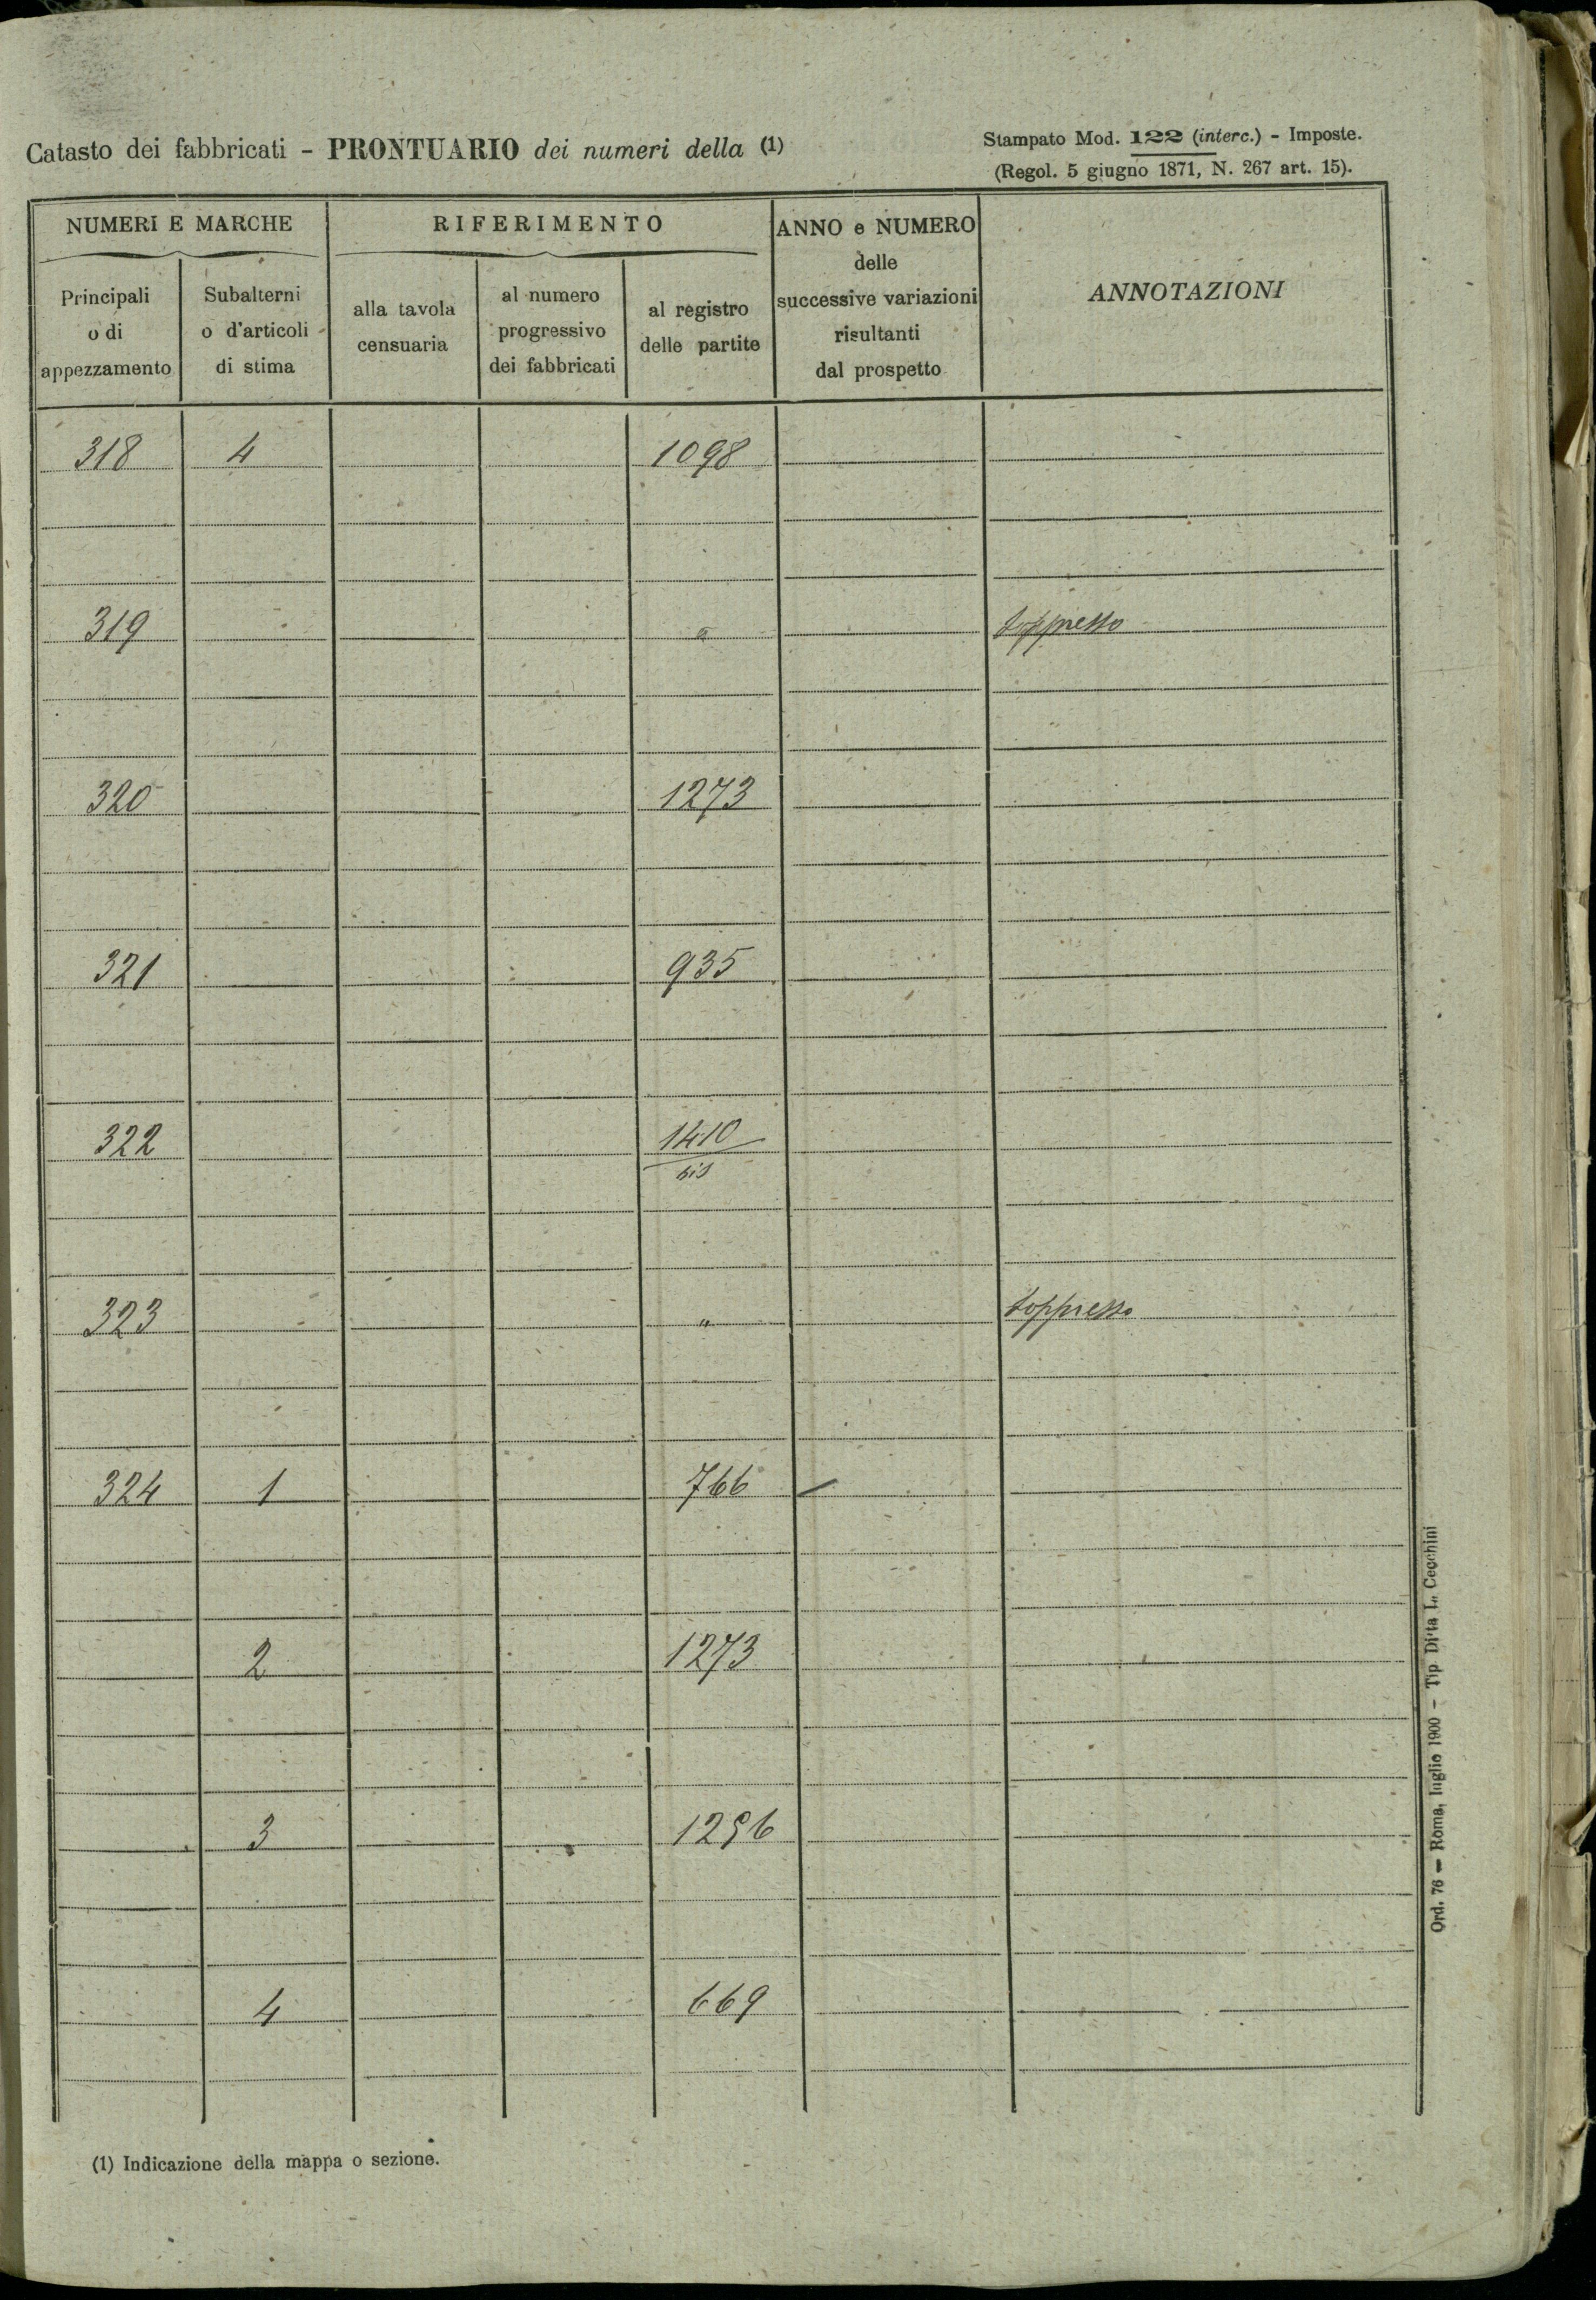 Catasto dei fabbricati - PRONTUARIO dei numeri della (1)
Stampato Mod. 122 (interc.) - Imposte.
(Regol. 5 giugno 1871, N. 267 art. 15).
NUMERI E MARCHE
RIFERIMENTO
ANNO e NUMERO
delle
successive variazioni
risultanti
dal prospetto
ANNOTAZIONI
Principali
o di
appezzamento
Subalterni
o d'articoli
di stima
alla tavola
censuaria
al numero
progressivo
dei fabbricati
al registro
delle partite
318 4 1098
319 " soppresso
320 1273
321 935
322 1410
bis
323 " soppresso
324 1 766
2 1273
3 1296
4 669
(1) Indicazione della mappa o sezione.
Ord. 76 — Roma, luglio 1900 - Tip Ditta L. Cecchini